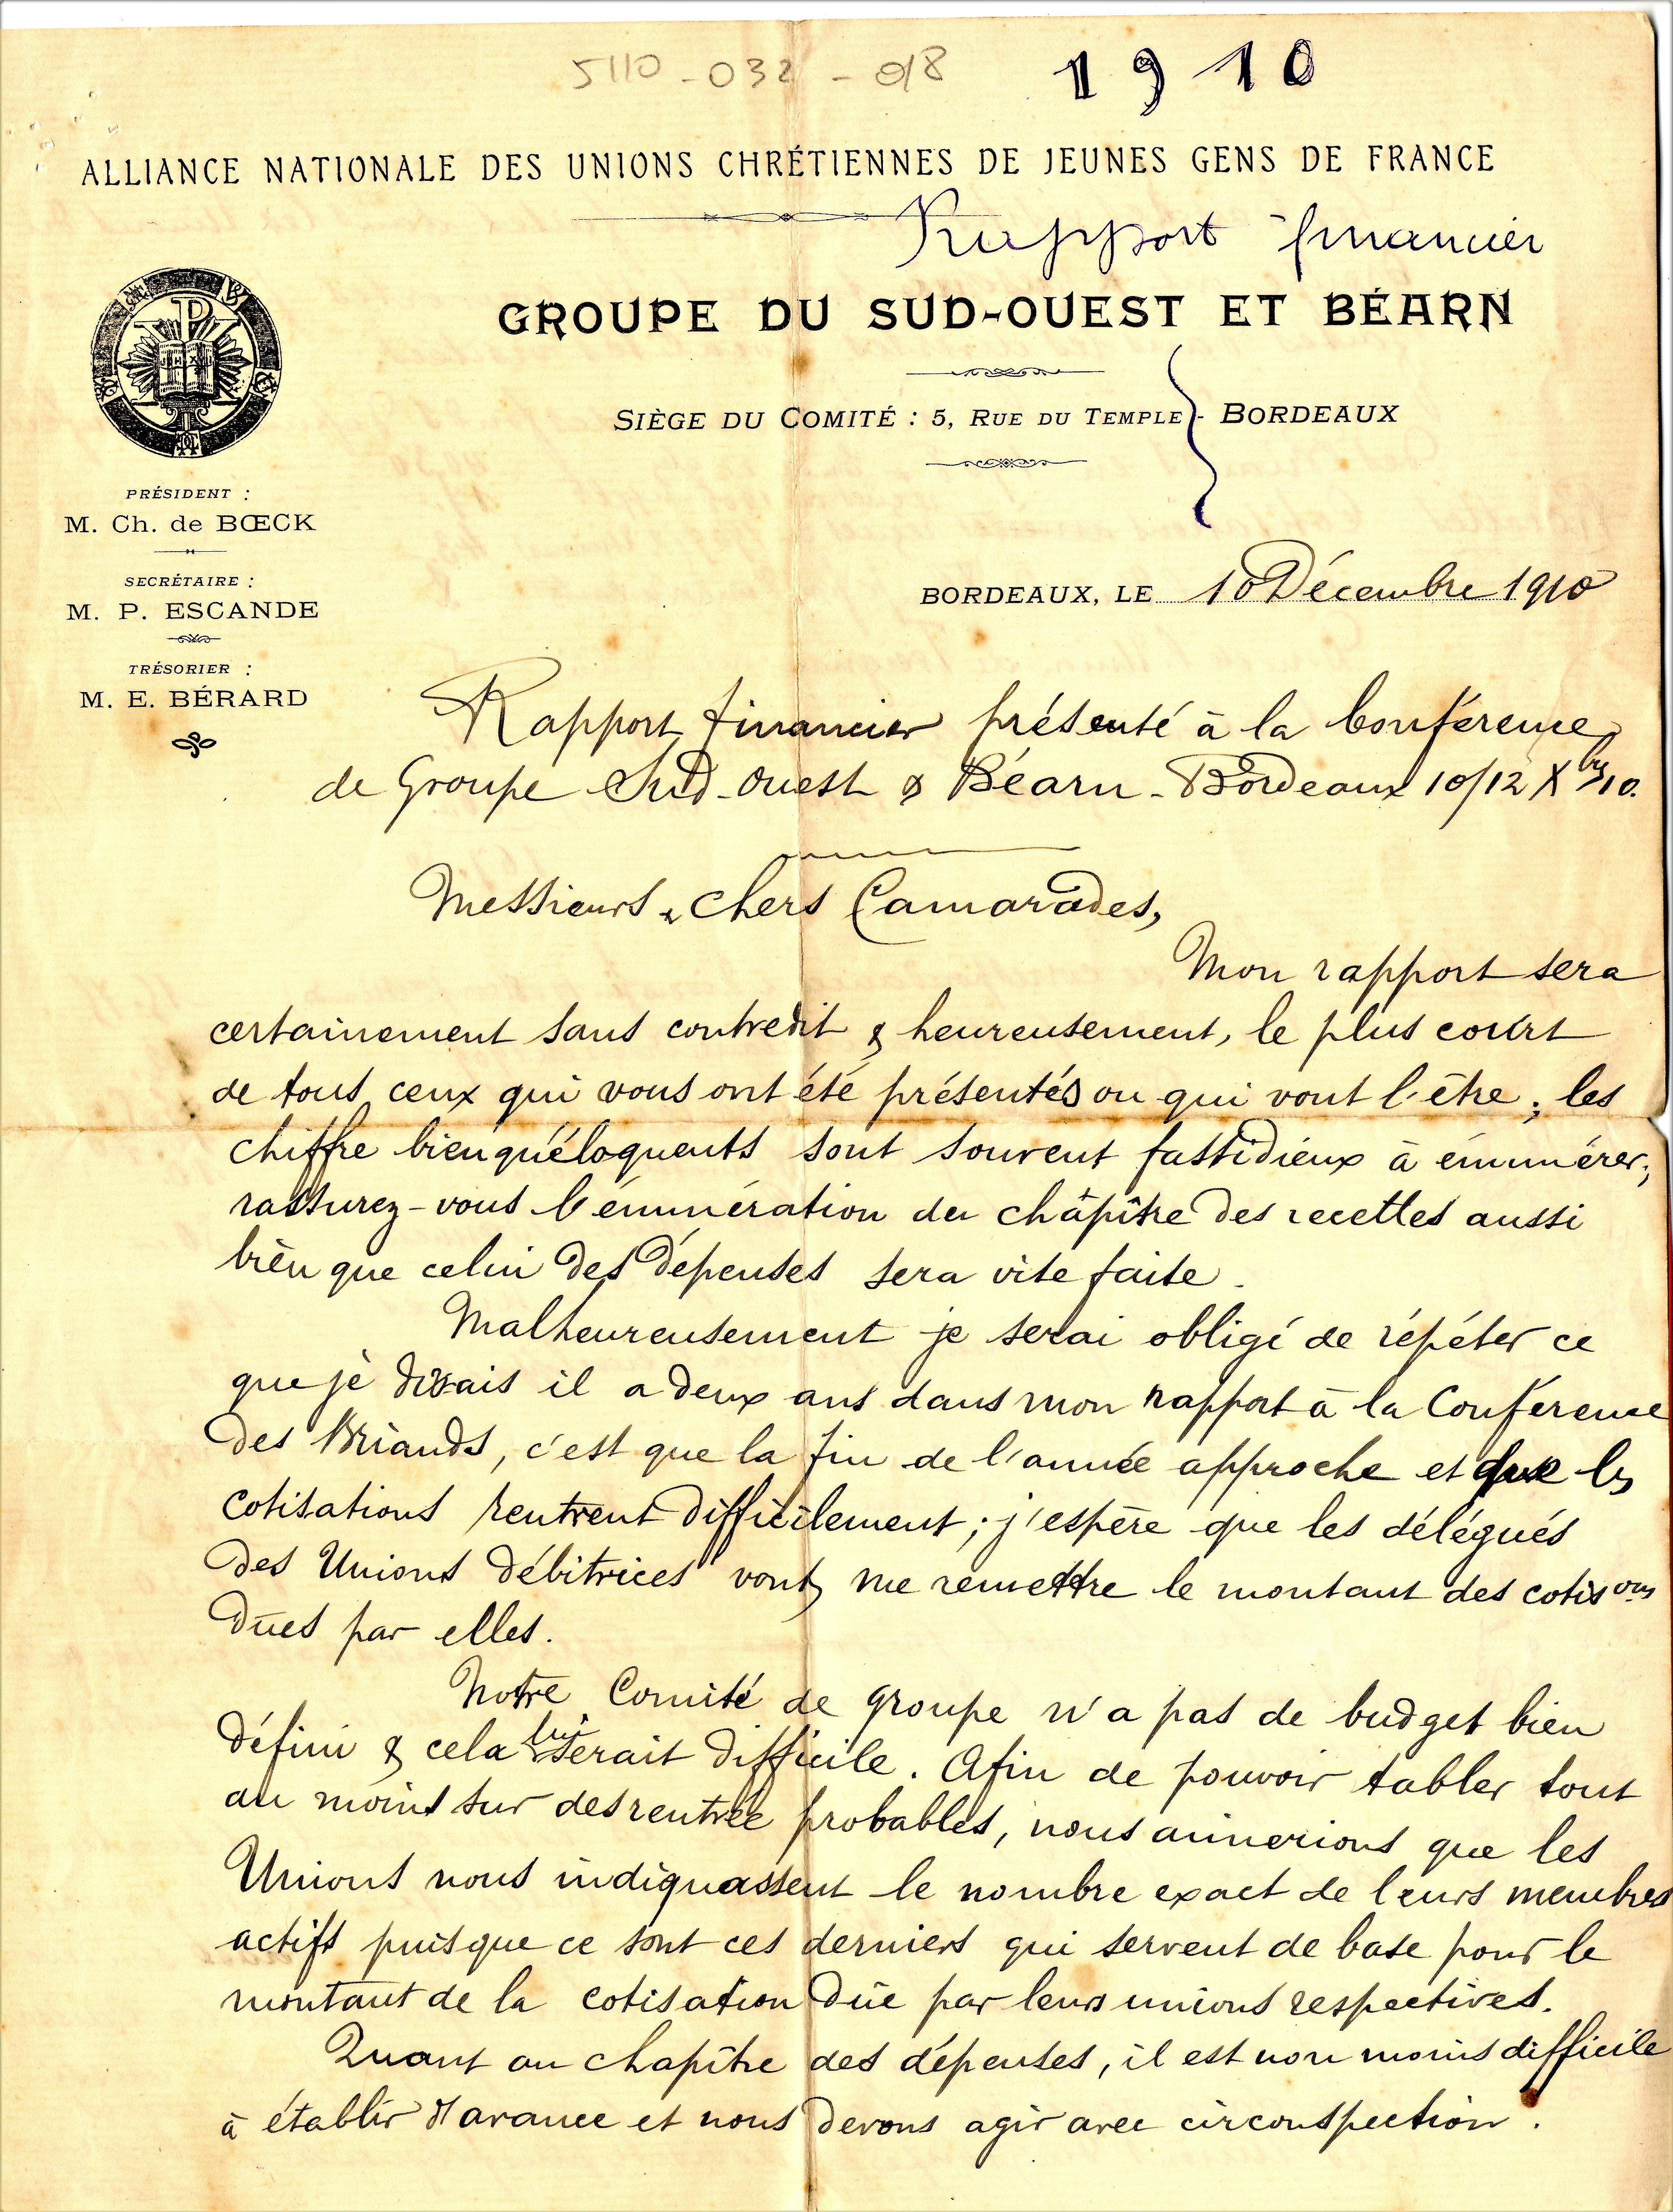 5110-032-018
1910
ALLIANCE NATIONALE DES UNIONS CHRÉTIENNES DE JEUNES GENS DE FRANCE
Rapport financier
GROUPE DU SUD-OUEST ET BÉARN
SIÈGE DU COMITÉ : 5, RUE DU TEMPLE - BORDEAUX
PRÉSIDENT :
M. Ch. de BŒCK
SECRÉTAIRE :
M. P. ESCANDE
TRÉSORIER :
M. E. BÉRARD
BORDEAUX, LE 10 Décembre 1910
Rapport financier présenté à la Conférence
de Groupe Sud-Ouest & Béarn - Bordeaux 10/12 Xbre 10.
Messieurs & chers Camarades,
Mon rapport sera
certainement sans contredit & heureusement, le plus court
de tous ceux qui vous ont été présentés ou qui vont l'être ; les
chiffre bien qu'éloquents sont souvent fastidieux à énumérer ;
rassurez-vous l'énumération du châpître des recettes aussi
bien que celui des dépenses sera vite faite.
Malheureusement je serai obligé de répéter ce
que je disais il a deux ans dans mon rapport à la Conférence
des Briands, c'est que la fin de l'année approche et que les
cotisations rentrent difficilement ; j'espère que les délégués
des Unions débitrices vont me remettre le montant des cotisons
dûes par elles.
Notre Comité de groupe n'a pas de budget bien
défini & cela lui serait difficile. Afin de pouvoir tabler tout
au moins sur des rentrée probables, nous aimerions que les
Unions nous indiquassent le nombre exact de leurs membres
actifs puisque ce sont ces derniers qui servent de base pour le
montant de la cotisation dûe par leurs unions respectives.
Quant au chapître des dépenses, il est non moins difficile
à établir d'avance et nous devons agir avec circonspection.